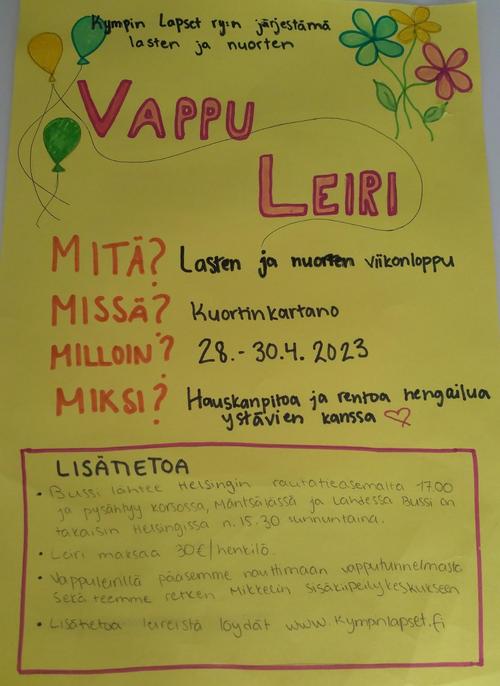 Kympin Lapset ry:n järjestämä
lasten ja nuorten
VAPPU
LEIRI
MITÄ? Lasten ja nuorten viikonloppu
MISSÄ? Kuortinkartano
MILLOIN? 28.-30.4. 2023
MIKSI? Hauskanpitoa ja rentoa hengailua
ystävien kanssa
LISÄTIETOA
• Bussi lähtee Helsingin rautatieasemalta 17.00
ja pysähtyy Korsossa, Mäntsälässä ja Lahdessa Bussi on
takaisin Helsingissä n. 15.30 sunnuntaina.
• Leiri maksaa 30€/henkilö.
• Vappuleirillä pääsemme nauttimaan vapputunnelmasta
sekä teemme retken Mikkelin sisäkiipeilykeskukseen
• Lisätietoa leireistä löydät www.kympinlapset.fi